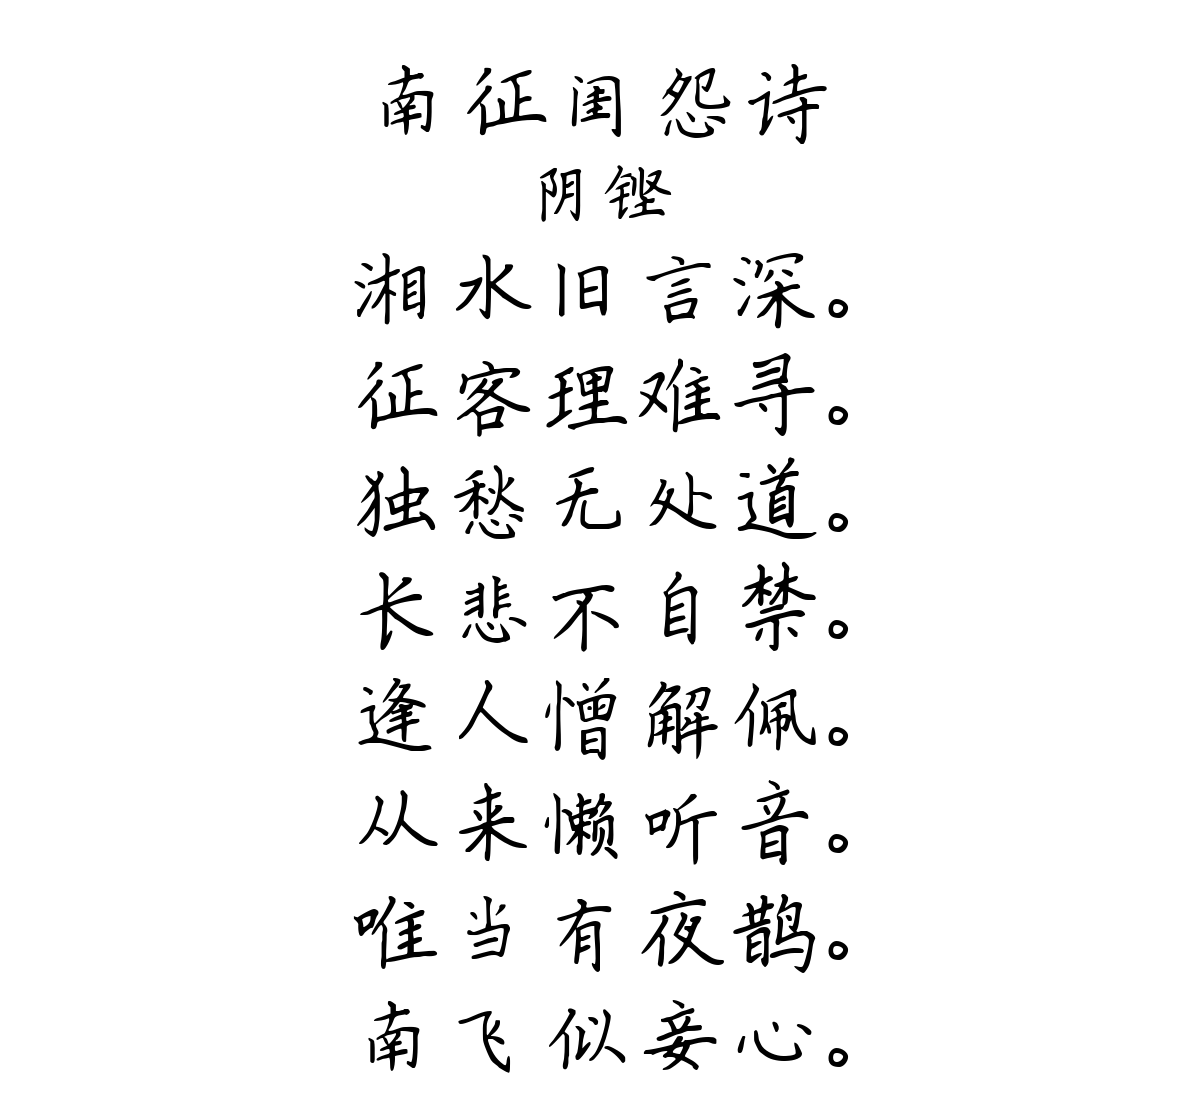 南征闺怨诗
阴铿
湘水旧言深。
征客理难寻。
独愁无处道。
长悲不自禁。
逢人憎解佩。
从来懒听音。
唯当有夜鹊。
南飞似妾心。